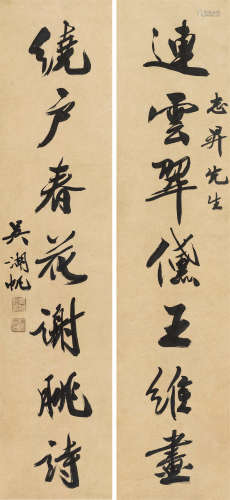 志昇先生
連雲翠黛王維畫
繞戶春花謝朓詩
吳湖帆